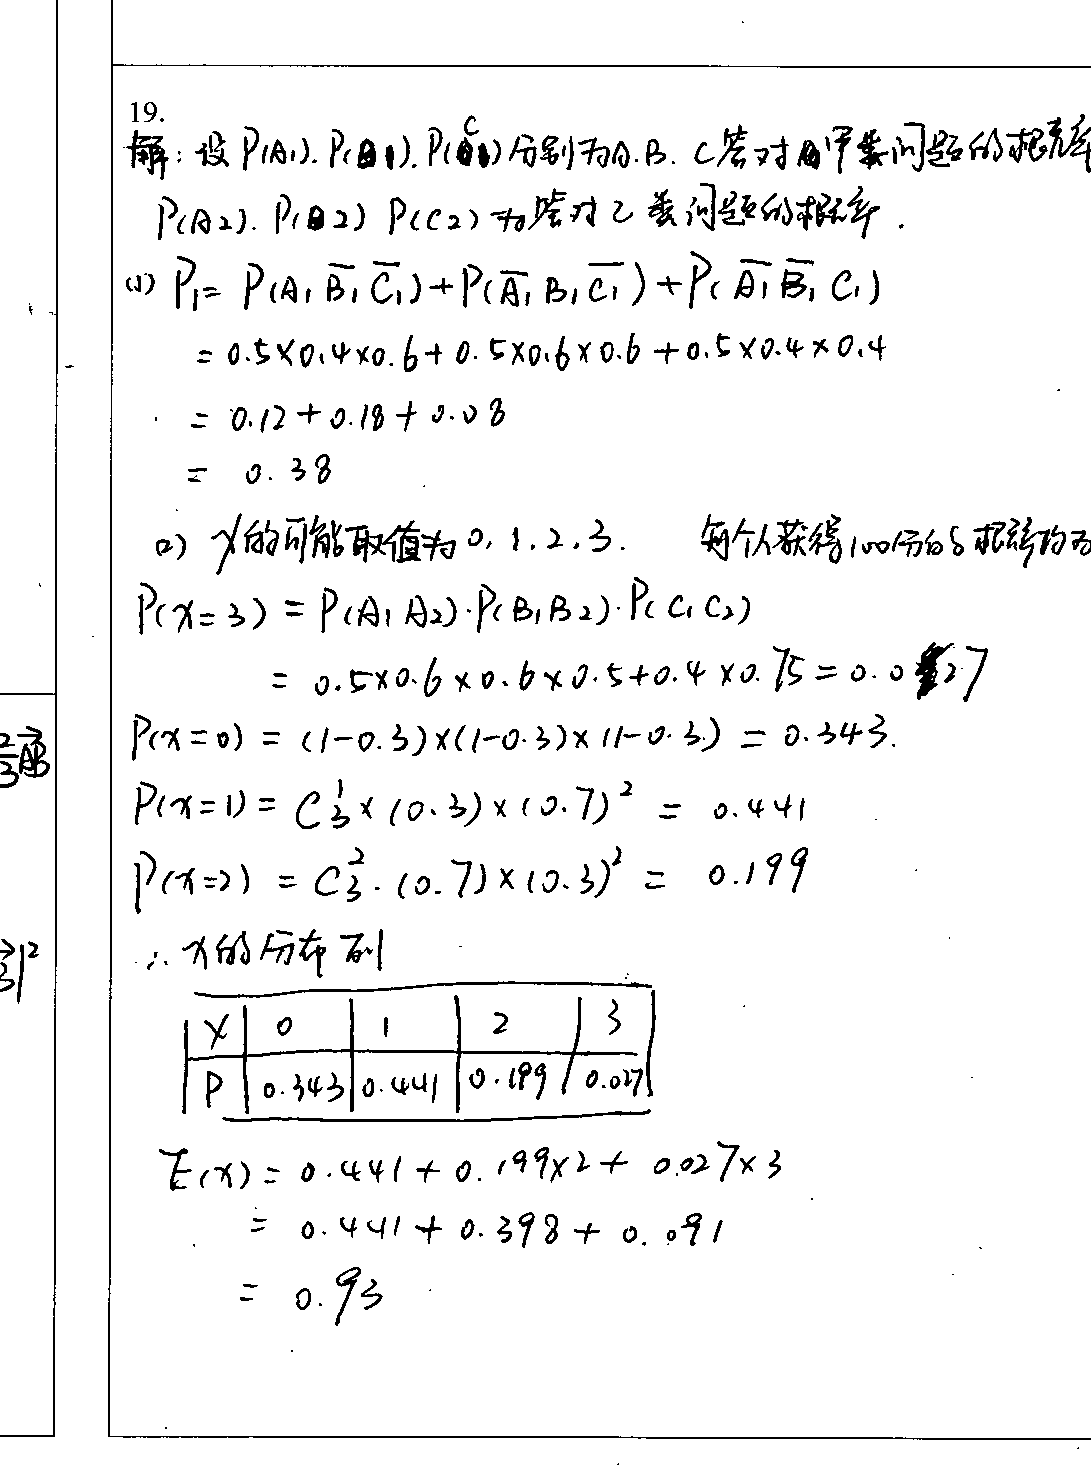 19.
解：设P(A1).P(B1).P(C1)分别为A.B.C答对甲类问题的概率
P(A2).P(B2) P(C2)为答对乙类问题的概率.
(1) P1= P(A1 B̅1 C̅1)+P(A̅1 B1 C̅1)+P(A̅1 B̅1 C1)
=0.5×0.4×0.6+0.5×0.6×0.6+0.5×0.4×0.4
= 0.12+0.18+0.08
= 0.38
(2) X的可能取值为0,1,2,3. 每个人获得100分的概率均为
P(X=3) = P(A1 A2)·P(B1B2)·P(C1C2)
= 0.5×0.6×0.6×0.5+0.4×0.75=0.027
P(X=0) = (1-0.3)×(1-0.3)×(1-0.3) = 0.343.
P(X=1) = C₃¹×(0.3)×(0.7)² = 0.441
P(X=2) = C₃²·(0.7)×(0.3)² = 0.199
∴X的分布列
X 0 1 2 3
P 0.343 0.441 0.199 0.027
E(X)= 0.441+0.199×2+0.027×3
= 0.441+0.398+0.091
= 0.93